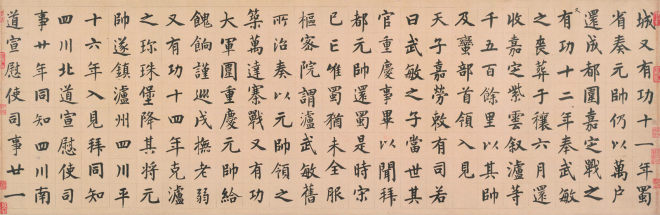 城又有功十一年蜀
省奏元帥仍以萬戶
還成都圍嘉定戰之
又有功十二年奉武敏
之喪葬于穰六月還
收嘉定紫雲叙瀘等
千五百餘里以其
及蠻部首領入見
天子嘉勞敕有司若
曰武敏之子當世其
官重慶事畢以聞拜
都元帥還蜀是時宋
已亡惟蜀猶未全服
樞密院謂瀘武敏舊
所治奏以元帥領之
築萬達寨戰又有功
大軍圍重慶元帥給
餽餉謹巡戍撫老弱
又有功十四年克瀘
之珎珠堡降其將元
帥遂鎮瀘州四川平
十六年入見拜同知
四川北道宣慰使司
事廿年同知四川南
道宣慰使司事廿一